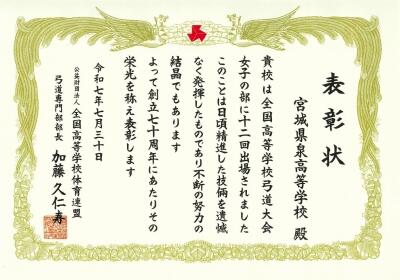 表彰状
宮城県泉高等学校 殿
貴校は全国高等学校弓道大会
女子の部に十二回出場されました
このことは日頃精進した技倆を遺憾
なく発揮したものであり不断の努力の
結晶でもあります
よって創立七十周年にあたりその
栄光を称え表彰します
令和七年七月三十日
公益財団法人 全国高等学校体育連盟
弓道専門部部長 加藤 久仁寿